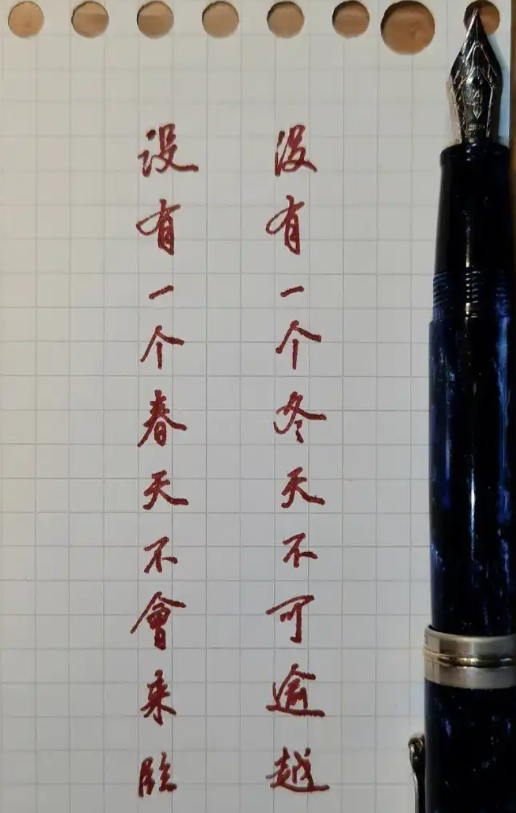 没有一个冬天不可逾越
没有一个春天不會来临